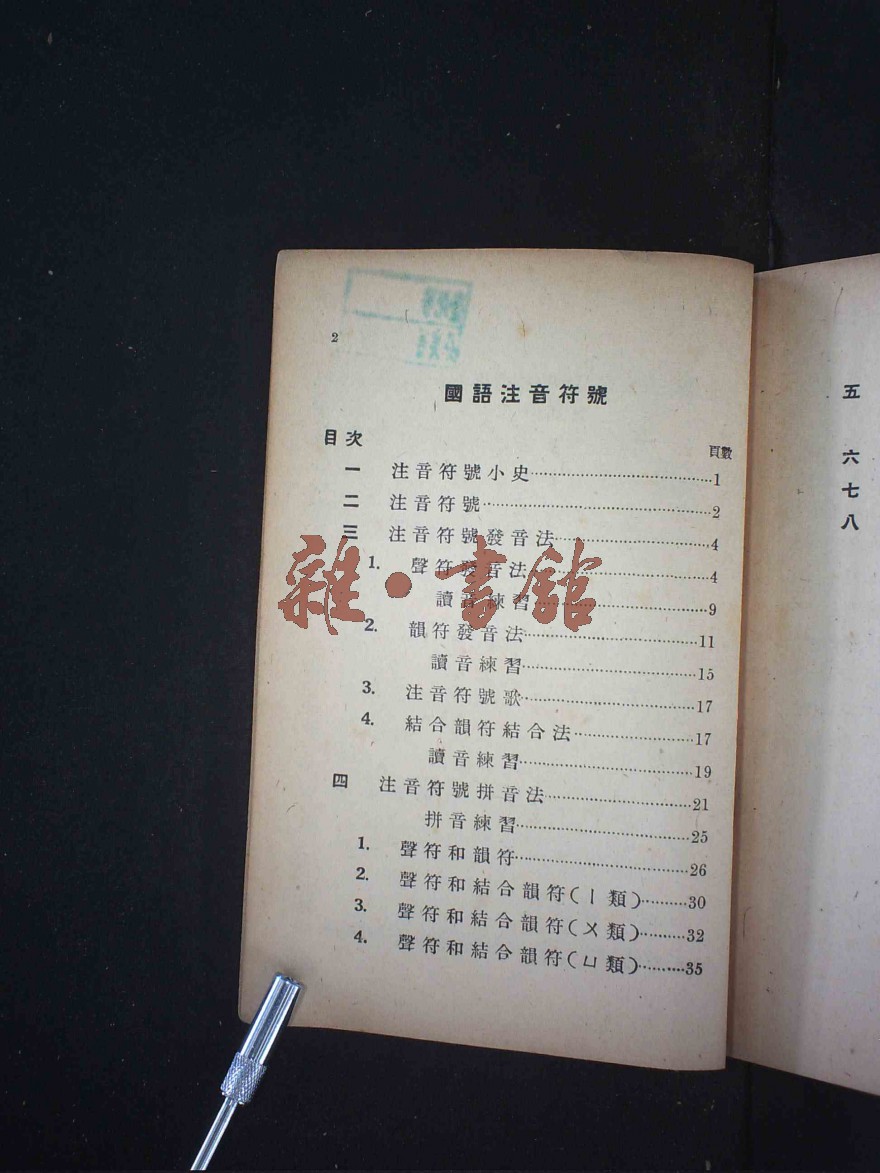 2
國語注音符號
目次
頁數
一 注音符號小史……1
二 注音符號……2
三 注音符號發音法……4
1. 聲符發音法……4
讀音練習……9
2. 韻符發音法……11
讀音練習……15
3. 注音符號歌……17
4. 結合韻符結合法……17
讀音練習……19
四 注音符號拼音法……21
拼音練習……25
1. 聲符和韻符……26
2. 聲符和結合韻符(丨類)……30
3. 聲符和結合韻符(ㄨ類)……32
4. 聲符和結合韻符(ㄩ類)……35
雜·書館
五
六
七
八